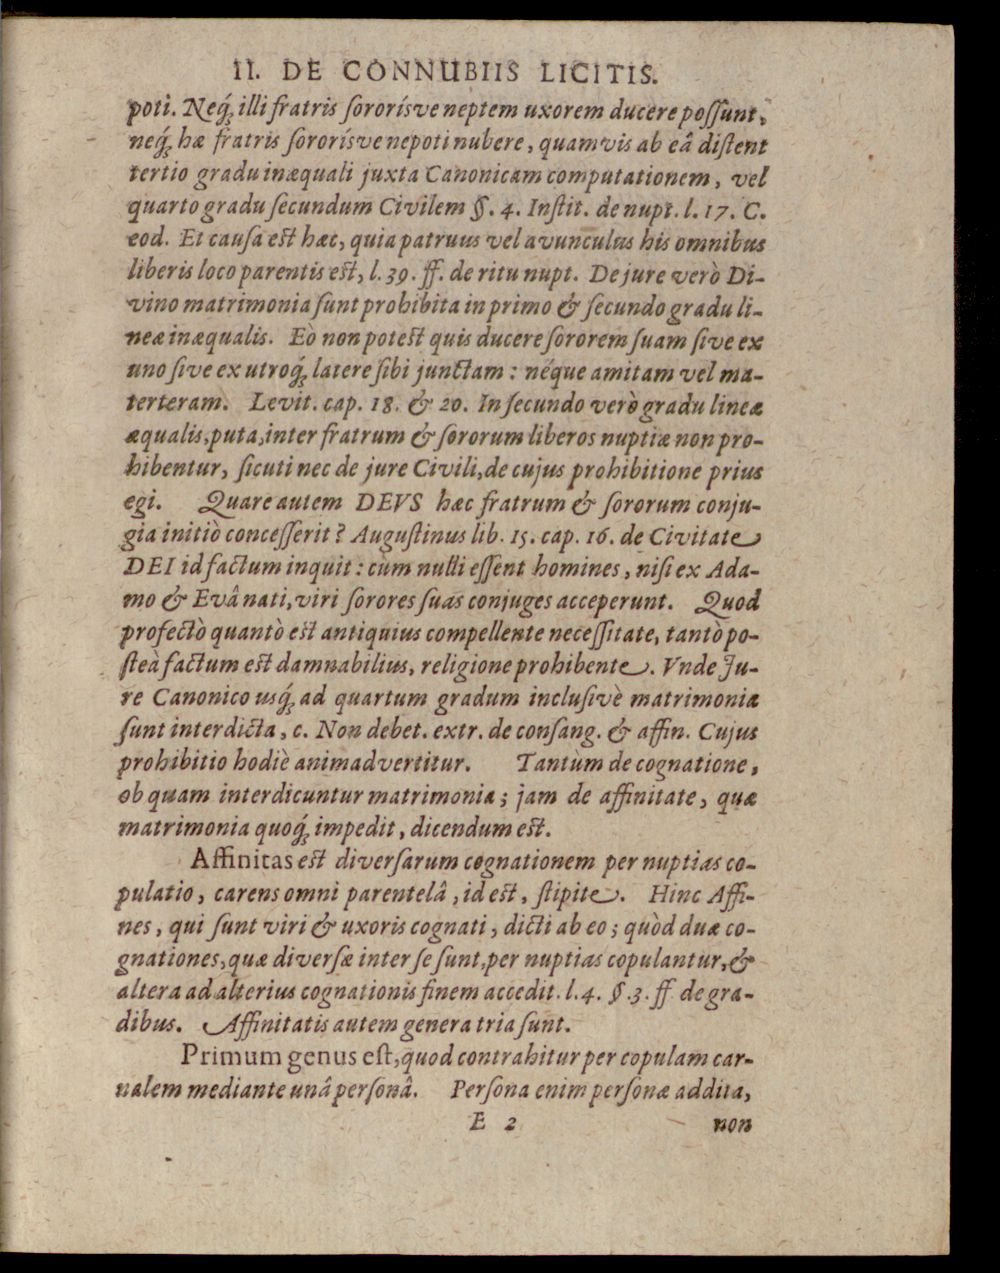 II. DE CONNUBIIS LICITIS.
poti. Neq́; illi fratris ſororísve neptem uxorem ducere poſſunt,
neq́; hæ fratris ſororísve nepoti nubere, quamvis ab eâ diſtent
tertio gradu inæquali juxta Canonicam computationem, vel
quarto gradu ſecundum Civilem §. 4. Inſtit. de nupt. l. 17. C.
eod. Et cauſa eſt hæc, quia patruus vel avunculus his omnibus
liberis loco parentis eſt, l. 39. ff. de ritu nupt. De jure verò Di-
vino matrimonia ſunt prohibita in primo & ſecundo gradu li-
neæ inæqualis. Eò non poteſt quis ducere ſororem ſuam ſive ex
uno ſive ex utroq́; latere ſibi junctam: néque amitam vel ma-
terteram. Levit. cap. 18. & 20. In ſecundo verò gradu lineæ
æqualis, puta, inter fratrum & ſororum liberos nuptiæ non pro-
hibentur, ſicuti nec de jure Civili, de cujus prohibitione prius
egi. Quare autem DEVS hæc fratrum & ſororum conju-
gia initiò conceſſerit? Auguſtinus lib. 15. cap. 16. de Civitate
DEI id factum inquit: cùm nulli eſſent homines, niſi ex Ada-
mo & Evâ nati, viri ſorores ſuas conjuges acceperunt. Quod
profectò quantò eſt antiquius compellente neceſſitate, tantò po-
ſteà factum eſt damnabilius, religione prohibente. Vnde Ju-
re Canonico uſq́; ad quartum gradum incluſivè matrimonia
ſunt interdicta, c. Non debet. extr. de conſang. & affin. Cujus
prohibitio hodiè animadvertitur. Tantùm de cognatione,
ob quam interdicuntur matrimonia; jam de affinitate, quæ
matrimonia quoq́; impedit, dicendum eſt.
Affinitas eſt diverſarum cognationem per nuptias co-
pulatio, carens omni parentelâ, id eſt, ſtipite. Hinc Affi-
nes, qui ſunt viri & uxoris cognati, dicti ab eo; quòd duæ co-
gnationes, quæ diverſæ inter ſe ſunt, per nuptias copulantur, &
altera ad alterius cognationis finem accedit. l. 4. §. 3. ff. de gra-
dibus. Affinitatis autem genera tria ſunt.
Primum genus eſt, quod contrahitur per copulam car-
nalem mediante unâ perſonâ. Perſona enim perſonæ addita,
E 2 non